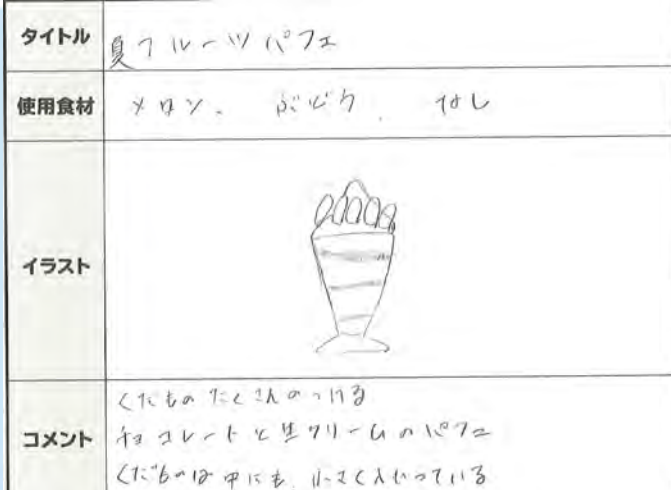 タイトル 夏フルーツパフェ
使用食材 メロン、 ぶどう、 なし
イラスト
コメント
くだものたくさんのっけてる
チョコレートと生クリームのパフェ
くだものは中にも、小さく入っている